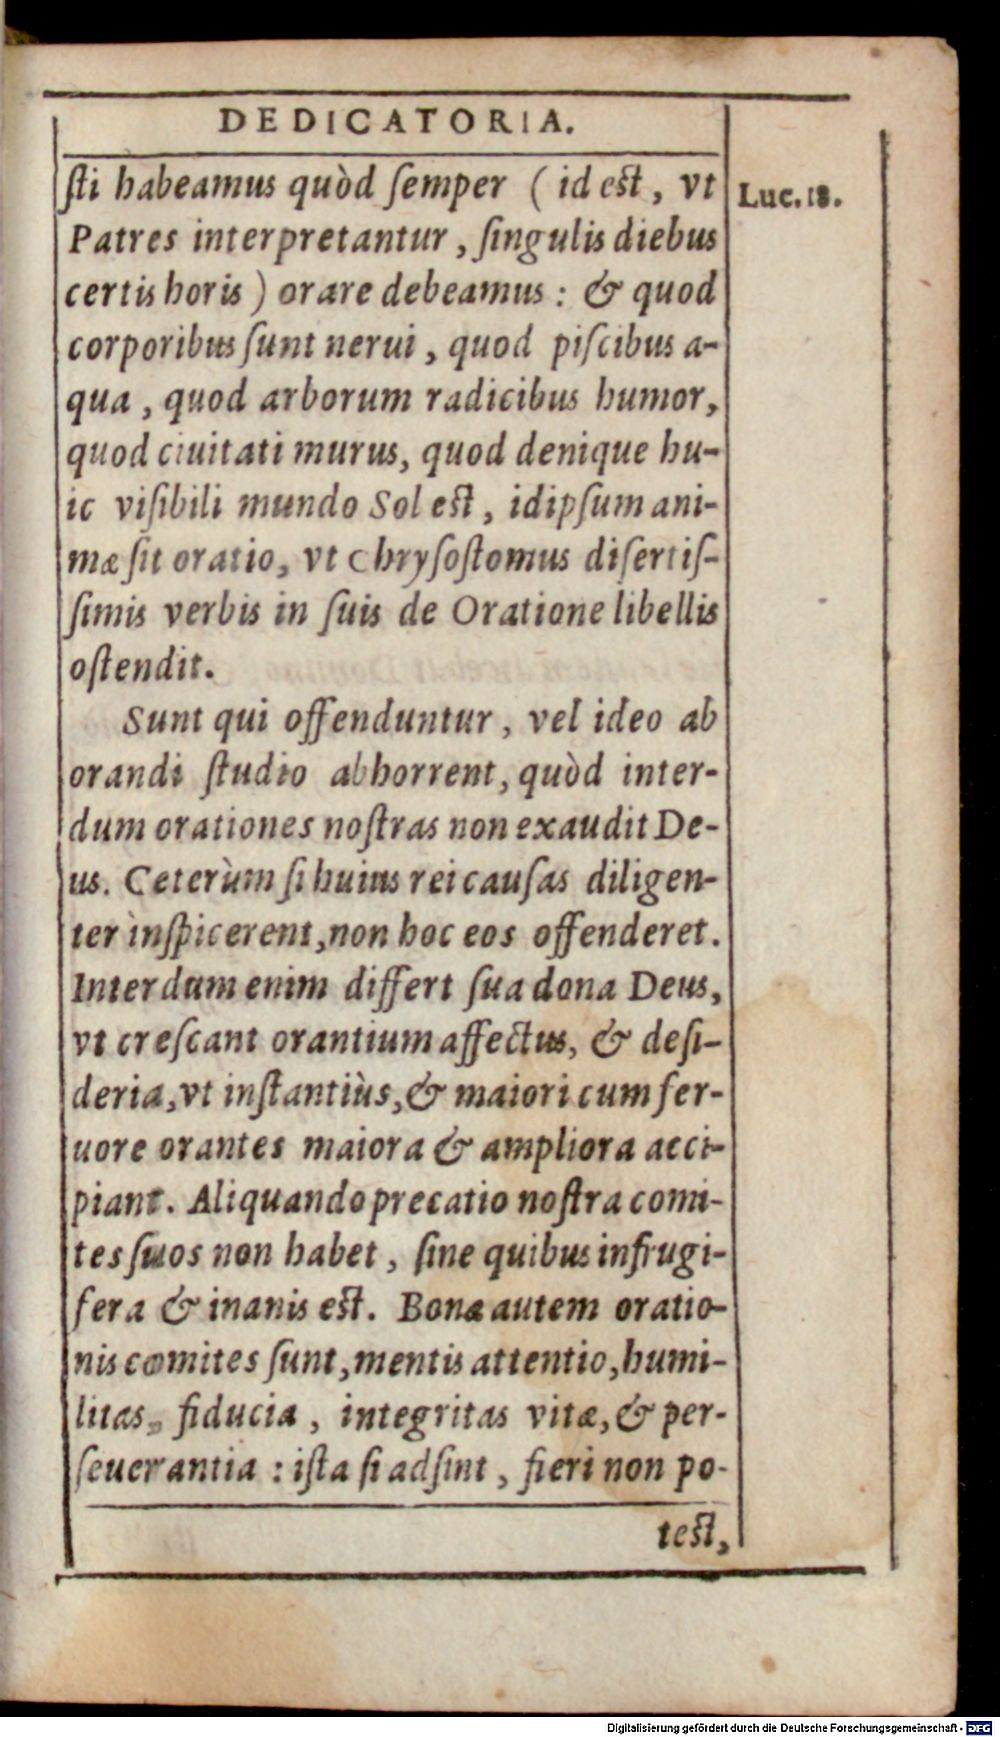 DEDICATORIA.
ſti habeamus quòd ſemper (id est, vt
Luc. 18.
Patres interpretantur, ſingulis diebus
certis horis) orare debeamus: & quod
corporibus ſunt nerui, quod piſcibus a-
qua, quod arborum radicibus humor,
quod ciuitati murus, quod denique hu-
ic viſibili mundo Sol eſt, idipſum ani-
mæ ſit oratio, vt Chryſoſtomus diſertiſ-
ſimis verbis in ſuis de Oratione libellis
oſtendit.
Sunt qui offenduntur, vel ideo ab
orandi ſtudio abhorrent, quòd inter-
dum orationes noſtras non exaudit De-
us. Ceterùm ſi huius rei cauſas diligen-
ter inſpicerent, non hoc eos offenderet.
Interdum enim differt ſua dona Deus,
vt creſcant orantium affectus, & deſi-
deria, vt inſtantiùs, & maiori cum fer-
uore orantes maiora & ampliora acci-
piant. Aliquando precatio noſtra comi-
tes ſuos non habet, ſine quibus infrugi-
fera & inanis eſt. Bonæ autem oratio-
nis comites ſunt, mentis attentio, humi-
litas, fiducia, integritas vitæ, & per-
ſeuerantia: iſta ſi adſint, fieri non po-
teſt,
Digitalisierung gefördert durch die Deutsche Forschungsgemeinschaft - DFG